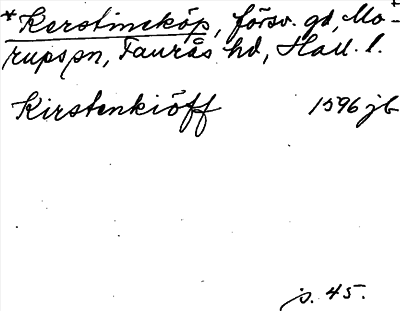 *Kerstineköp, försv. gd, Mo-
rups sn, Faurås hd, Hall. l.
Kirstenkiöff 1596 jb
s. 45.